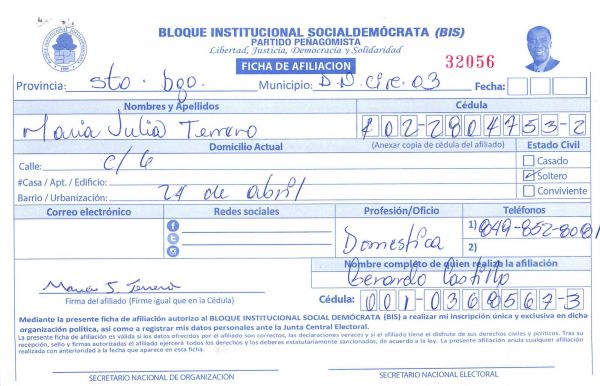 BLOQUE INSTITUCIONAL SOCIALDEMÓCRATA (BIS)
PARTIDO PEÑAGOMISTA
Libertad, Justicia, Democracia y Solidaridad
FICHA DE AFILIACION
32056
Provincia: Sto. Dgo. Municipio: D.N. Circ. 03 Fecha:
Nombres y Apellidos
Cédula
Maria Julia Terrero
402-2804753-2
Domicilio Actual
(Anexar copia de cédula del afiliado)
Estado Civil
Calle: c/ 6
Casado
#Casa / Apt. / Edificio:
Soltero
Barrio / Urbanización: 24 de abril
Conviviente
Correo electrónico
Redes sociales
Profesión/Oficio
Teléfonos
1) 849-852-8081
Domestica
2)
Nombre completo de quien realiza la afiliación
Gerardo Castillo
Maria J. Terrero
Firma del afiliado (Firme igual que en la Cédula)
Cédula: 001-0368567-3
Mediante la presente ficha de afiliación autorizo al BLOQUE INSTITUCIONAL SOCIAL DEMÓCRATA (BIS) a realizar mi inscripción única y exclusiva en dicha
organización política, así como a registrar mis datos personales ante la Junta Central Electoral.
La presente ficha de afiliación es válida si los datos ofrecidos por el afiliado son correctos, las declaraciones veraces y si el afiliado tiene el disfrute de sus derechos civiles y políticos. Tras su
recepción, sello y firmas autorizadas el afiliado ejercerá todos los derechos y los deberes estatutariamente sancionados, de acuerdo a la ley. La presente afiliación anula cualquier afiliación
realizada con anterioridad a la fecha que aparece en esta ficha.
SECRETARIO NACIONAL DE ORGANIZACIÓN
SECRETARIO NACIONAL ELECTORAL